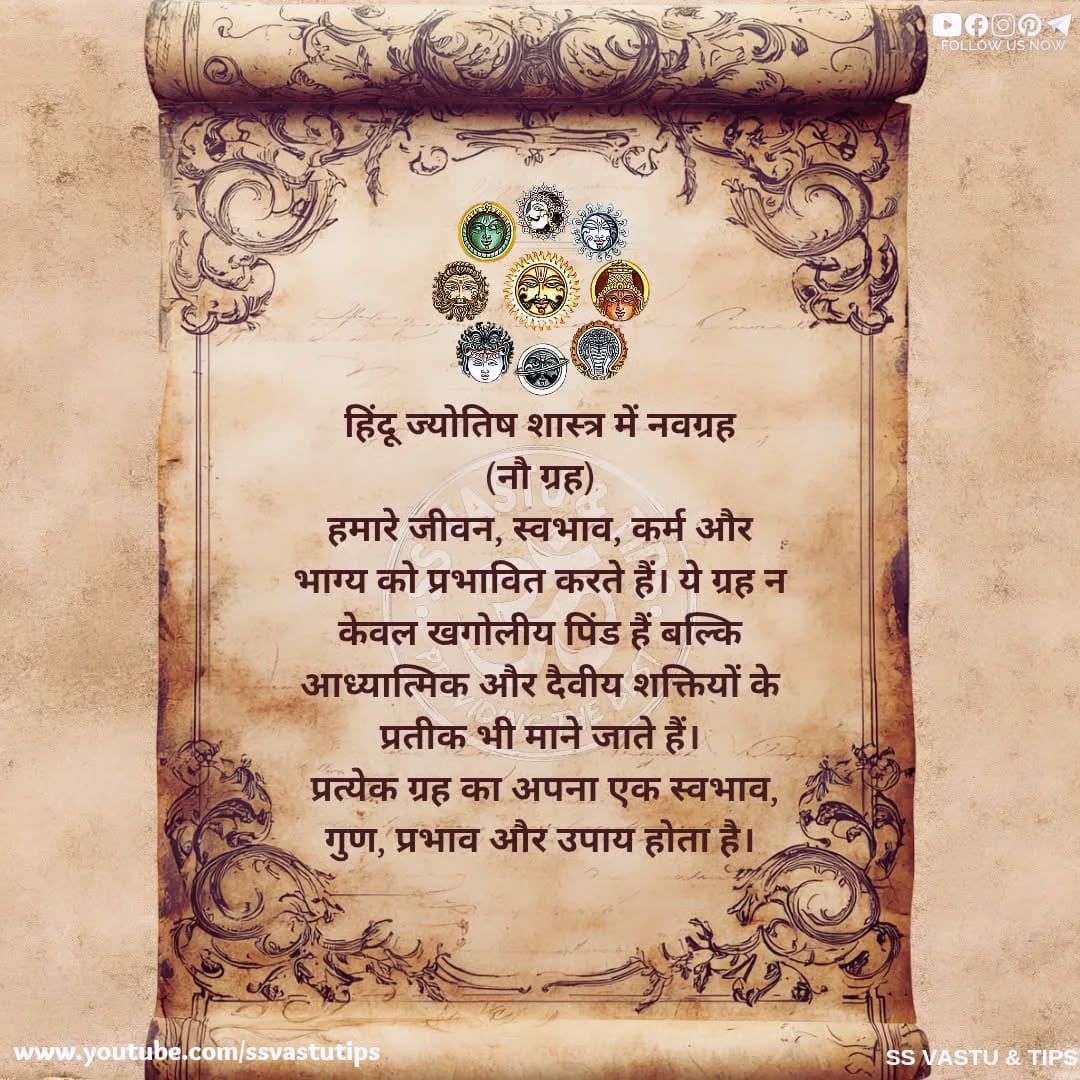 FOLLOW US NOW
हिंदू ज्योतिष शास्त्र में नवग्रह
(नौ ग्रह)
हमारे जीवन, स्वभाव, कर्म और
भाग्य को प्रभावित करते हैं। ये ग्रह न
केवल खगोलीय पिंड हैं बल्कि
आध्यात्मिक और दैवीय शक्तियों के
प्रतीक भी माने जाते हैं।
प्रत्येक ग्रह का अपना एक स्वभाव,
गुण, प्रभाव और उपाय होता है।
www.youtube.com/ssvastutips
SS VASTU & TIPS